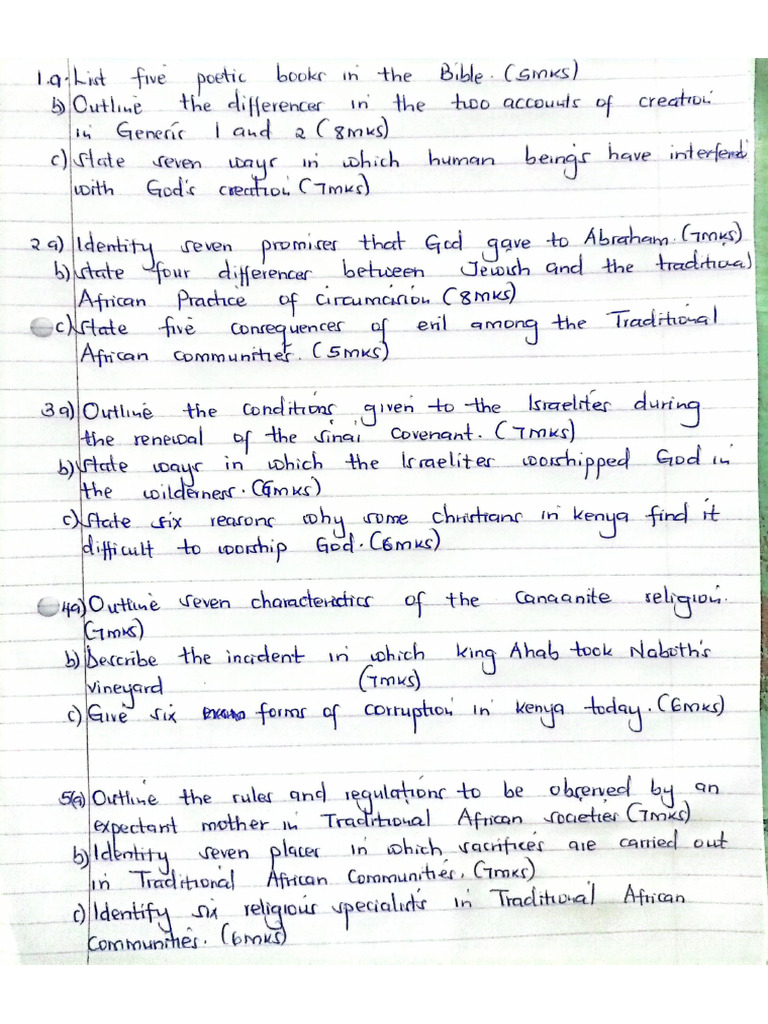 1.a. List five poetic books in the Bible. (5mks)
b) Outline the differences in the two accounts of creation
in Genesis 1 and 2 (8mks)
c) State seven ways in which human beings have interfered
with God's creation (7mks)
2 a) Identity seven promises that God gave to Abraham. (7mks)
b) State four differences between Jewish and the traditional
African Practice of circumcision (8mks)
c) State five consequences of evil among the Traditional
African communities. (5mks)
3 a) Outline the conditions given to the Israelites during
the renewal of the Sinai covenant. (7mks)
b) State ways in which the Israelites worshipped God in
the wilderness. (6mks)
c) State six reasons why some christians in kenya find it
difficult to worship God. (6mks)
4a) Outline seven characteristics of the Canaanite religion.
(7mks)
b) Describe the incident in which king Ahab took Naboth's
vineyard (7mks)
c) Give six forms of corruption in kenya today. (6mks)
5(a) Outline the rules and regulations to be observed by an
expectant mother in Traditional African societies (7mks)
b) Identity seven places in which sacrifices are carried out
in Traditional African Communities. (7mks)
c) Identify six religious specialists in Traditional African
Communities. (6mks)